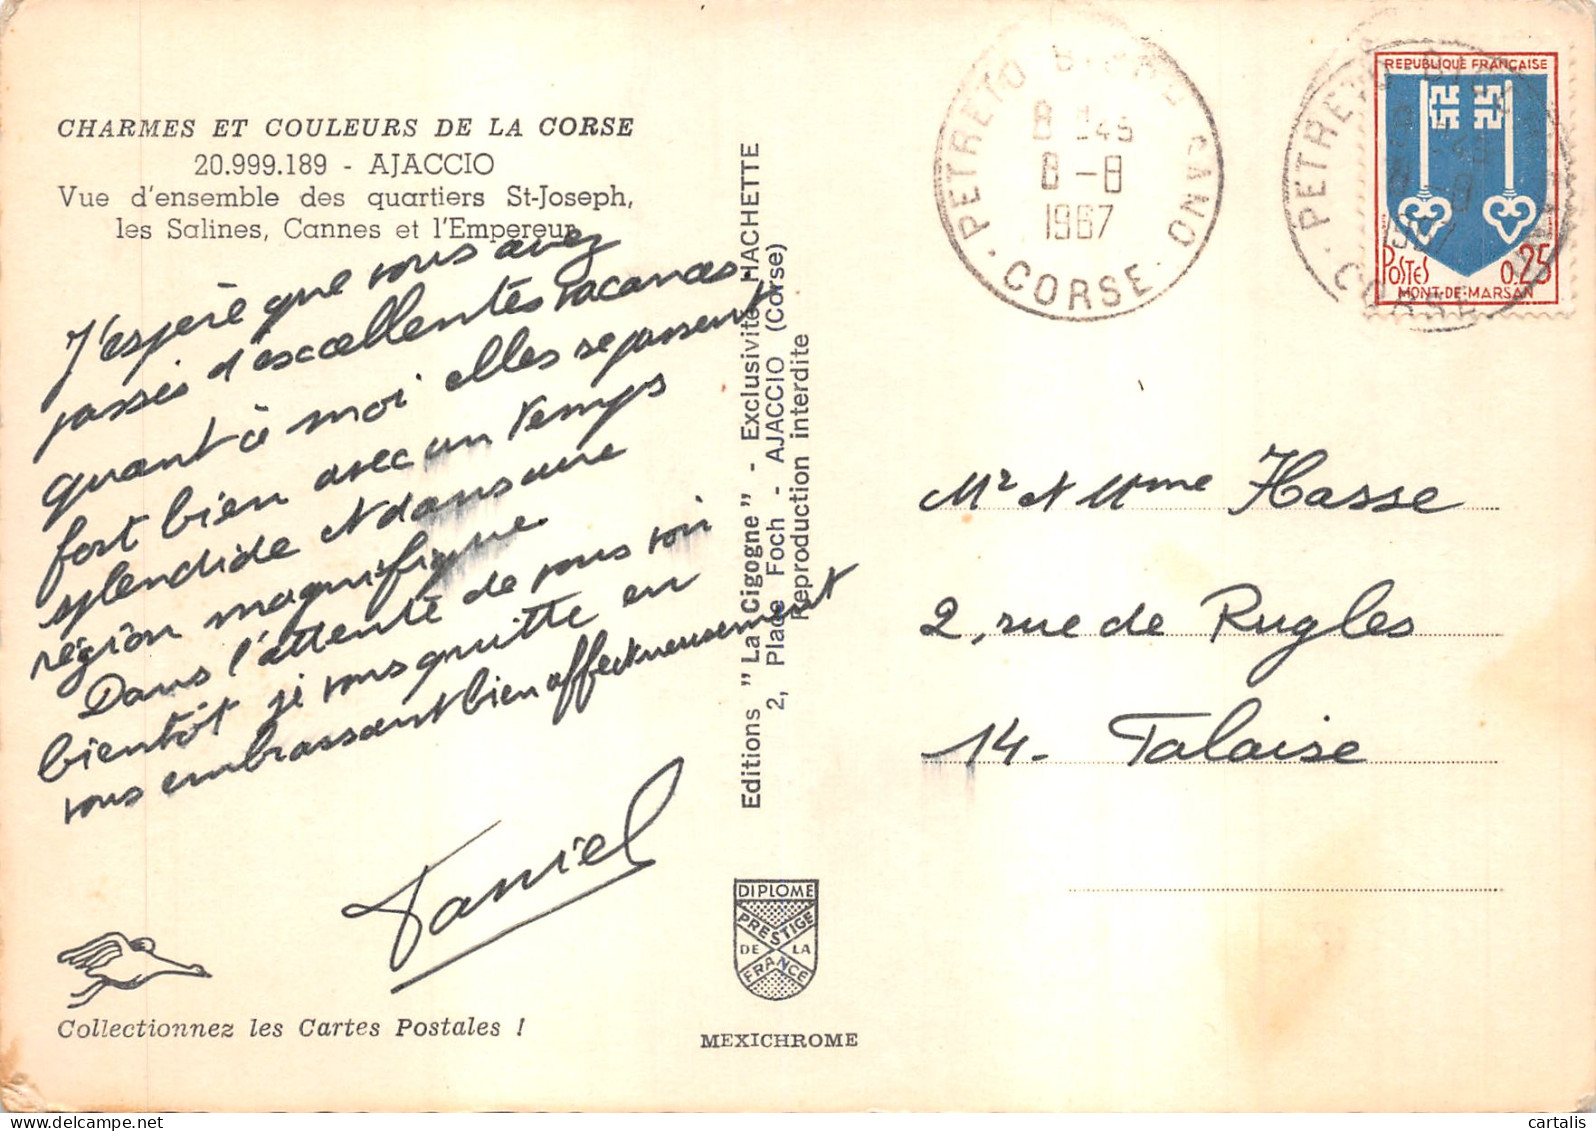 CHARMES ET COULEURS DE LA CORSE
20.999.189 - AJACCIO
Vue d'ensemble des quartiers St-Joseph,
les Salines, Cannes et l'Empereur
J'espère que vous avez
passés d'excellentes vacances
quant à moi elles se passent
fort bien avec un temps
splendide et dans une
région magnifique
Dans l'attente de vous voir
bientôt je vous quitte en
vous embrassant bien affectueusement
Daniel
Collectionnez les Cartes Postales !
Editions "La Cigogne" - Exclusivité HACHETTE
2, Place Foch - AJACCIO (Corse)
Reproduction interdite
DIPLOME
PRESTIGE
DE LA
FRANCE
MEXICHROME
PETRETO BICCHISANO
8-8
1967
· CORSE ·
REPUBLIQUE FRANÇAISE
POSTES 0,25
MONT-DE-MARSAN
PETRETO
8-8
1967
CORSE
Mr et Mme Hasse
2, rue de Rugles
14- Falaise
cartalis